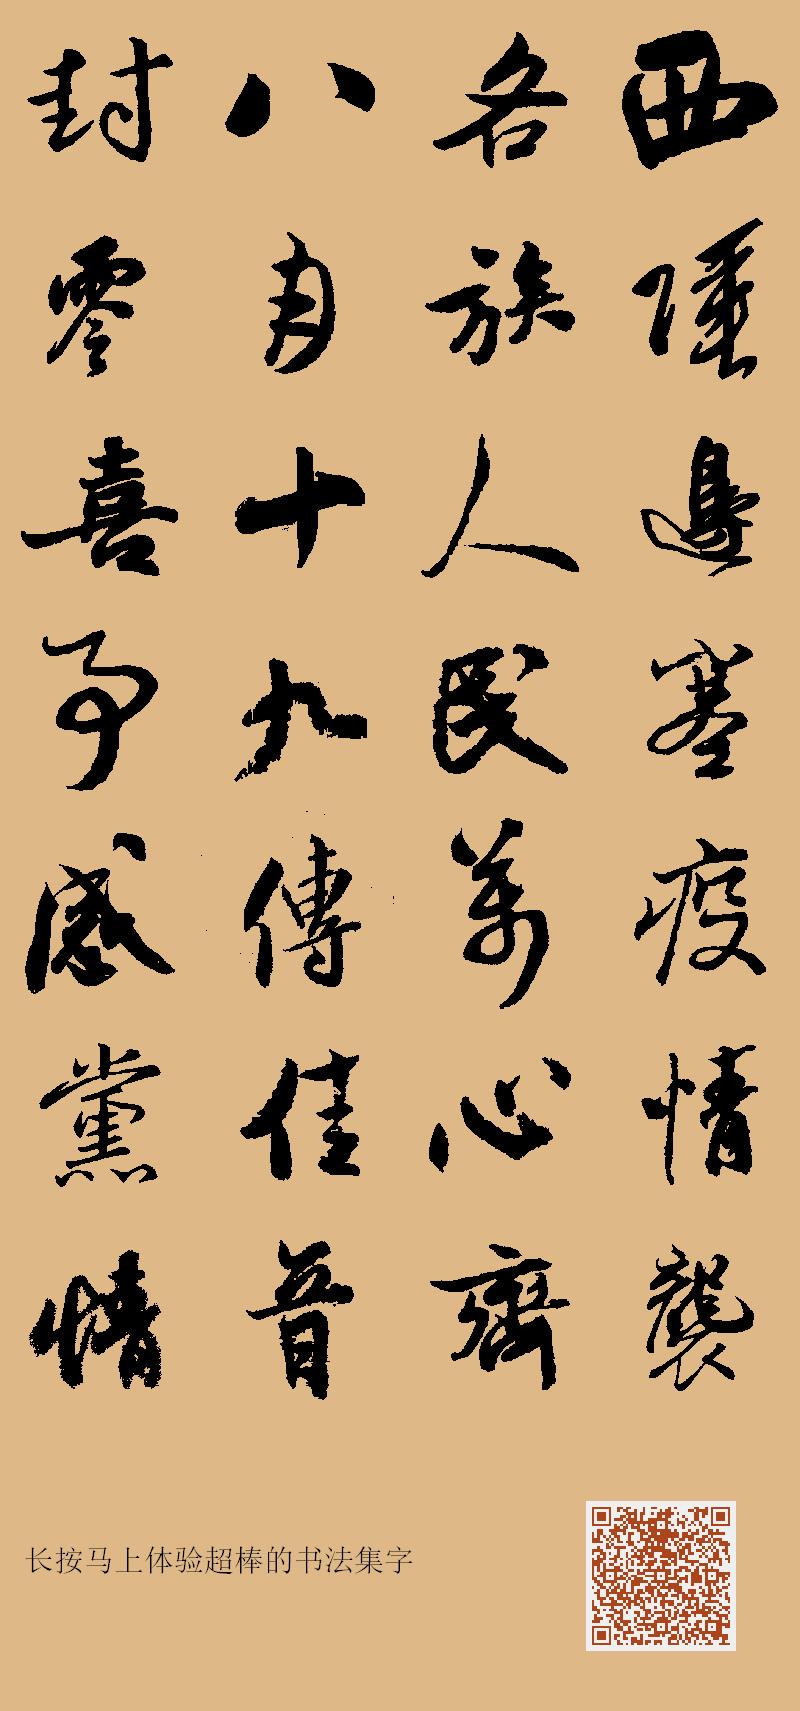 西陲邊塞疫情襲
各族人民萬心齊
八月十九傳佳音
封零喜事感黨情
长按马上体验超棒的书法集字